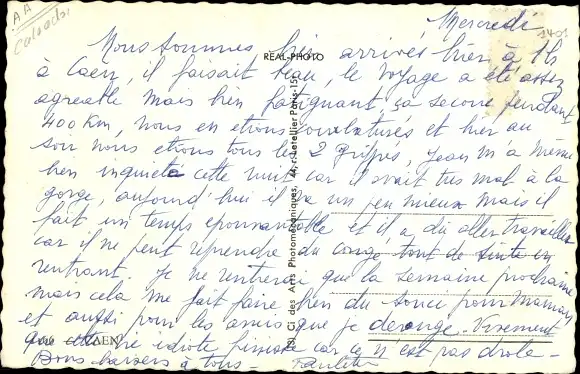 AA
Calvados
Mercredi
1401
Nous sommes bien arrivés hier à 1h
REAL-PHOTO
à Caen, il faisait beau, le voyage a été assez
agréable mais bien fatiguant, ça secoue pendant
400 km, nous en étions courbaturés et hier au
soir nous étions tous les 2 grippés, Jean m'a même
bien inquiétée cette nuit car il avait très mal à la
gorge, aujourd'hui il va un peu mieux mais il
fait un temps épouvantable et il a dû aller travailler
car il ne peut reprendre du congé tout de suite en
rentrant. Je ne rentrerai que la semaine prochaine
mais cela me fait faire bien du souci pour Maman
et aussi pour les amis que je dérange. Vivement
que cette idiote finisse car ce n'est pas drôle -
CAEN
Bons baisers à tous - Paulette
(S) Ci des Arts Photomécaniques, 44, r. Letellier Paris-15e